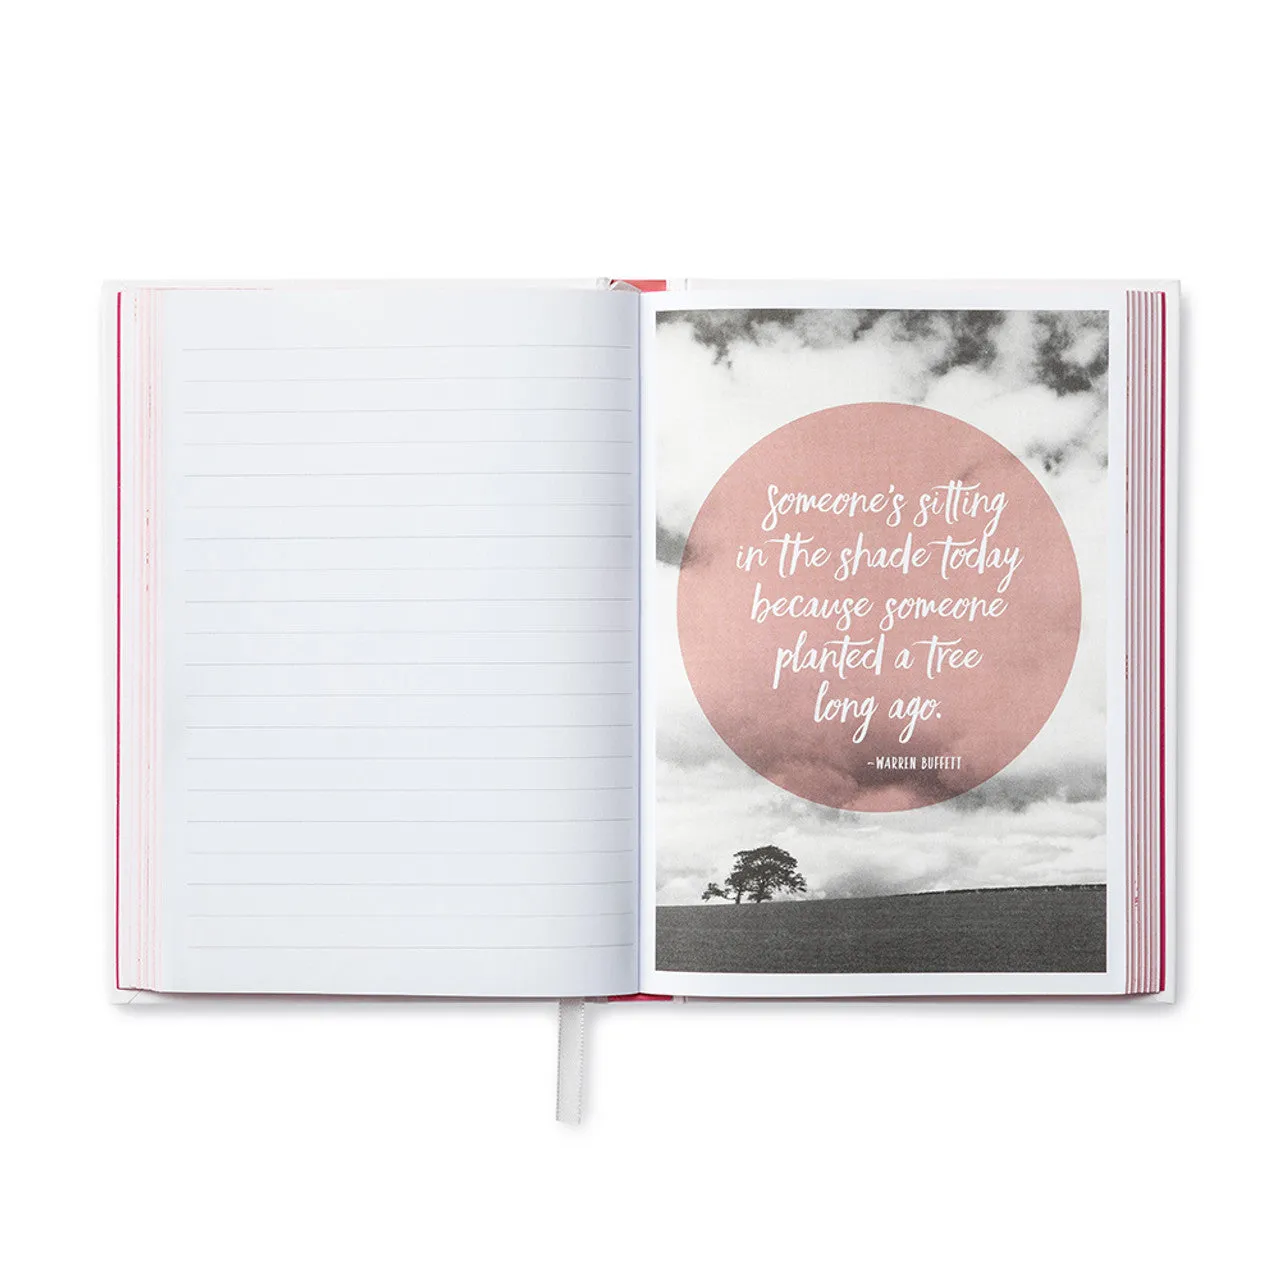 Someone's sitting
in the shade today
because someone
planted a tree
long ago.
~WARREN BUFFETT